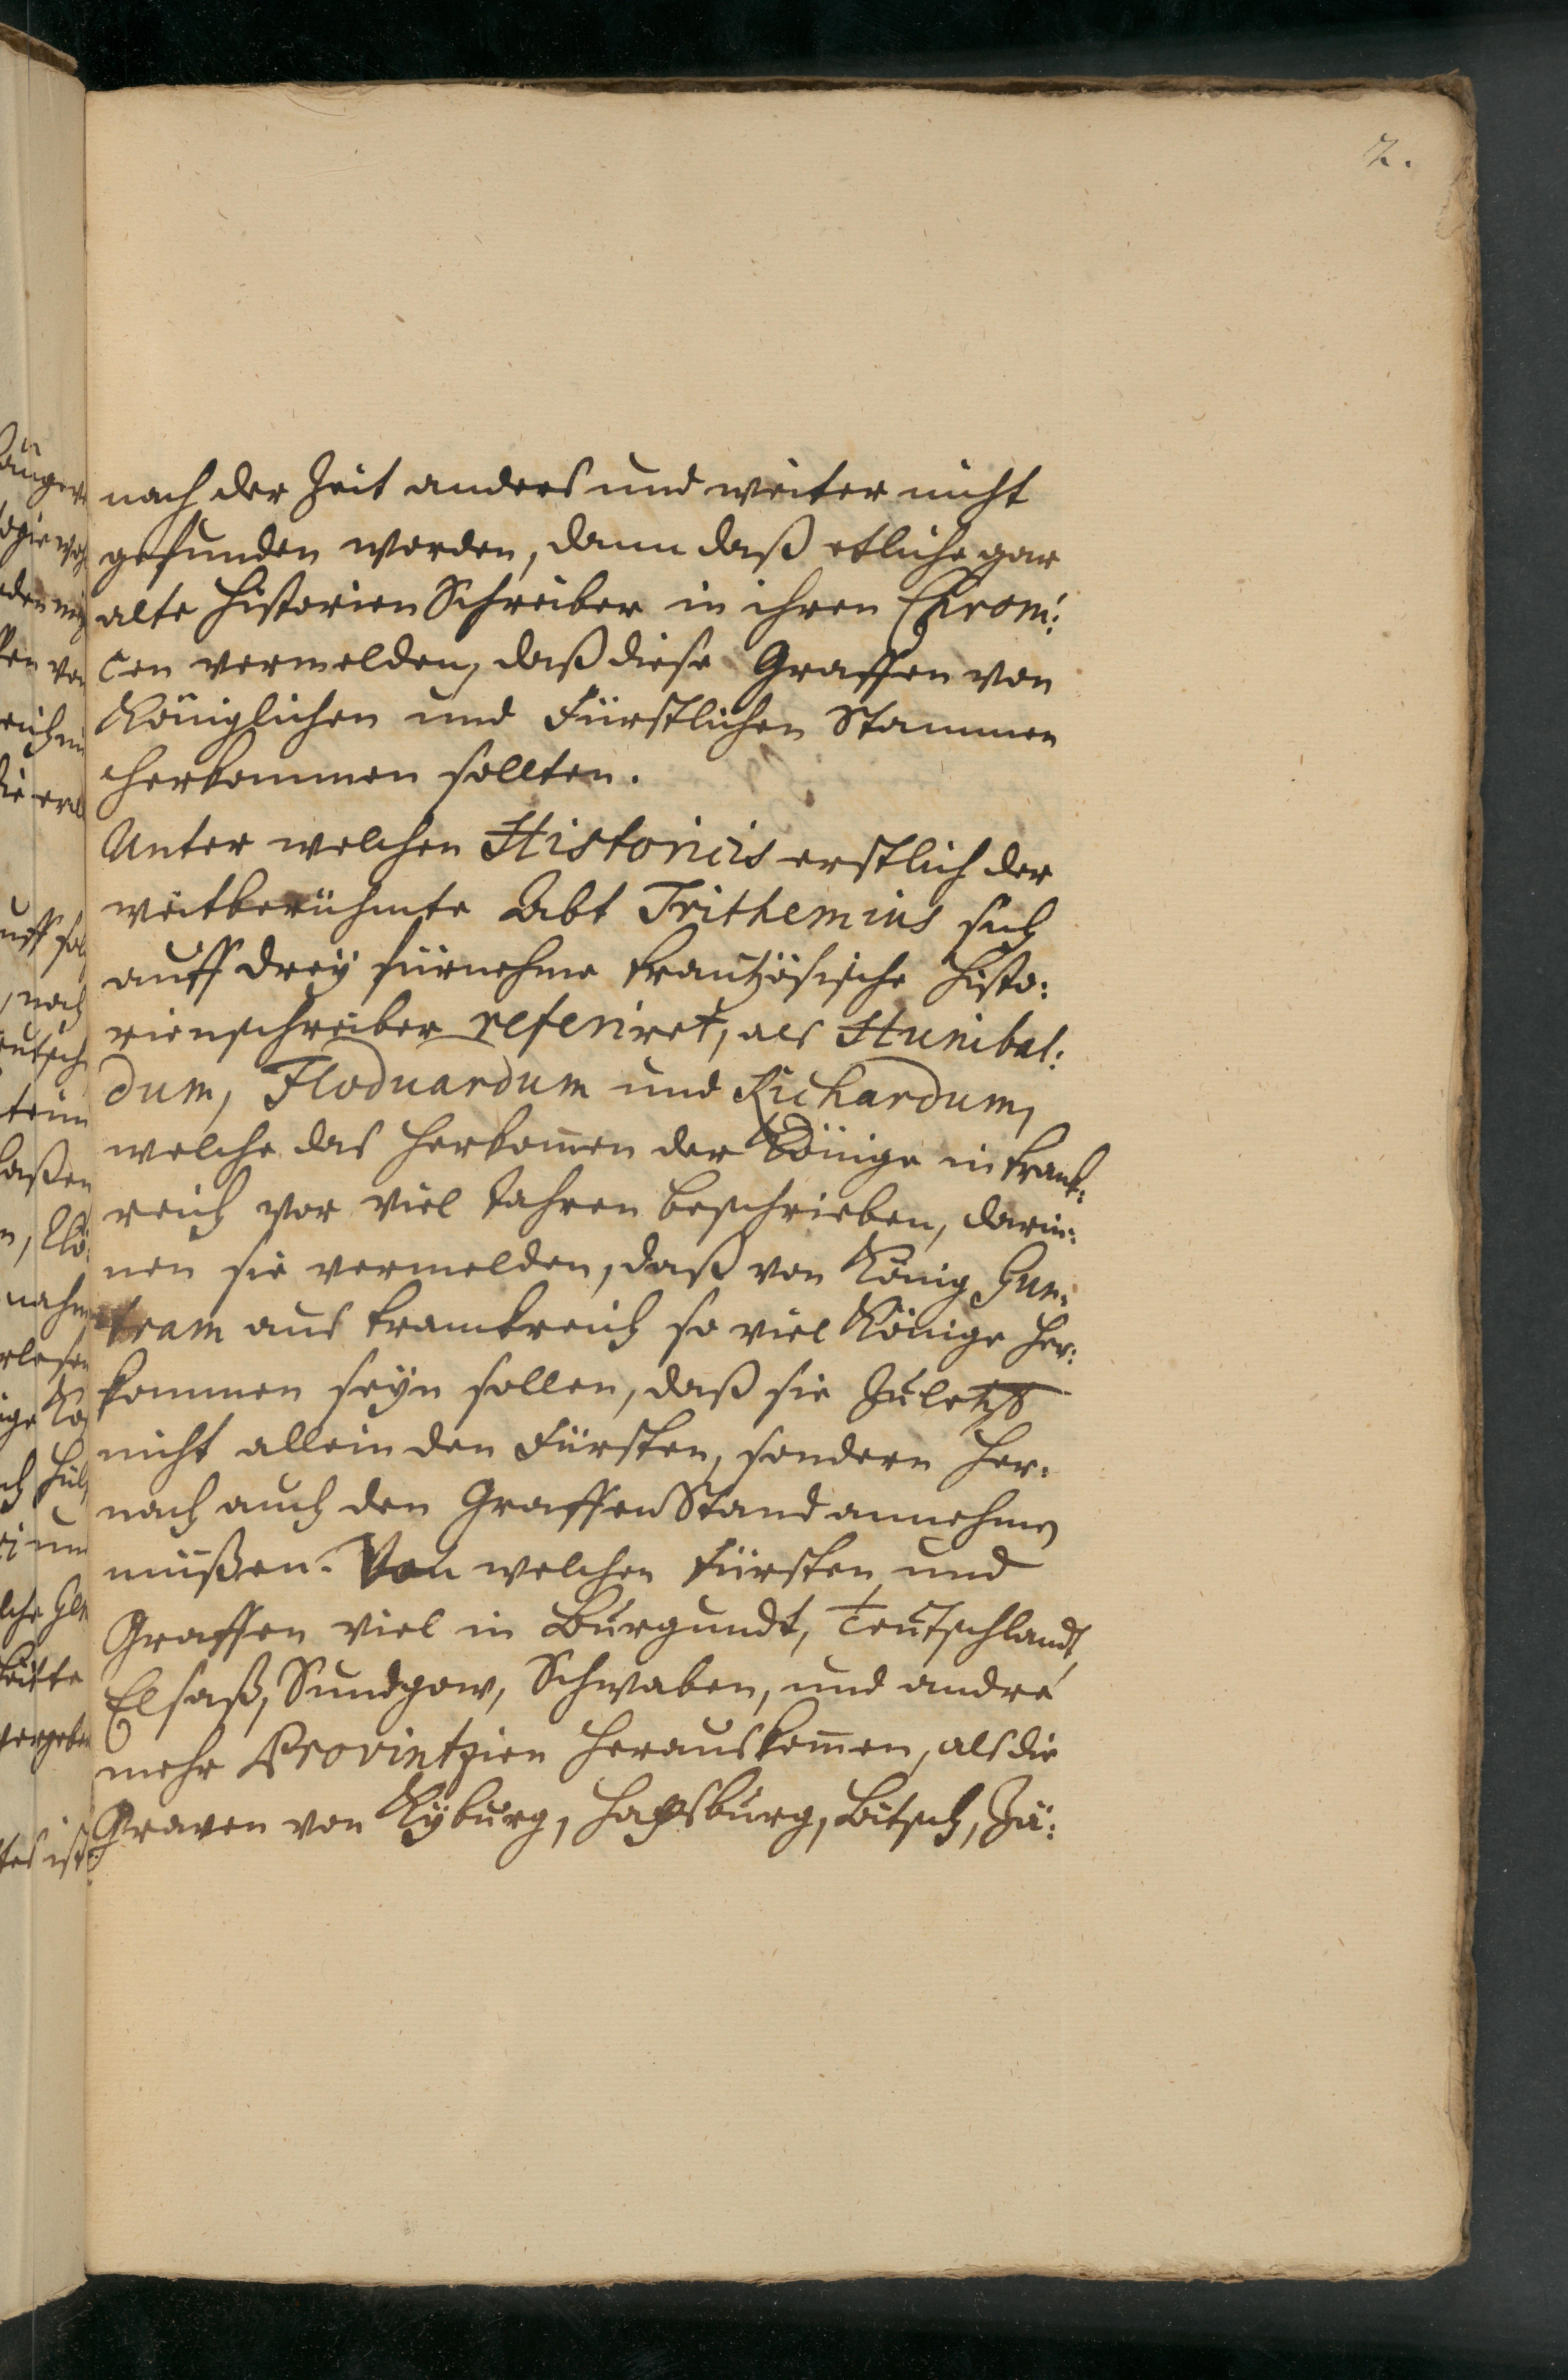 2.
nach der Zeit anders und weiter nicht
gefunden worden, dann daß etliche gar
alte Historien Schreiber in ihren Chroni:
cen vermelden, daß diese Graffen von
Königlichen und Fürstlichen Stammen
herkommen sollten.
Unter welchen Historicis erstlich der
weitberühmte Abt Trithemius sich
auff dreÿ fürnehme frantzösische Histo:
rienschreiber referiret, als Hunibal:
dum, Floduardum und Richardum,
welche das herkom̄en der Könige in Franck:
reich vor viel Jahren beschrieben, darin:
nen sie vermelden, daß von König Gun:
tram aus Franckreich so viel Könige her:
kommen seÿn sollen, daß sie zuletzt
nicht allein den Fürsten, sondern her:
nach auch den Graffen Stand annehmen
müßen. Von welchen Fürsten und
Graffen viel in Burgundt, Teutschlandt,
Elsaß, Sundgow, Schwaben, und andre
mehr Provintzien herauskom̄en, als die
Graven von Kÿburg, Hapsburg, Bitsch, Zä: